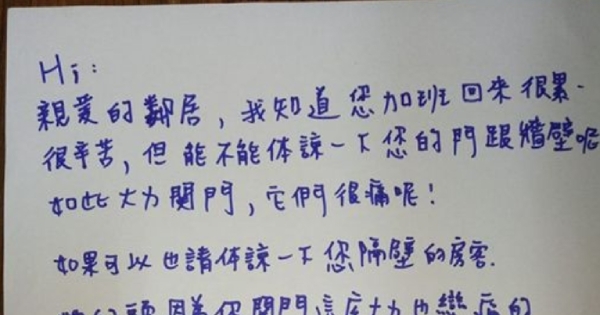 Hi:
親愛的鄰居，我知道您加班回來很累、
很辛苦，但能不能体諒一下您的門跟牆壁呢
如此大力關門，它們很痛呢！
如果可以也請体諒一下您隔壁的房客.
頭因為你關門這麼大力也變扁的